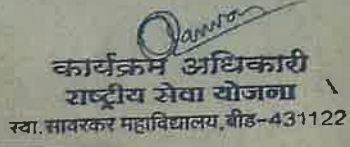 कार्यक्रम अधिकारी
राष्ट्रीय सेवा योजना
स्वा. सावरकर महाविद्यालय, बीड-431122